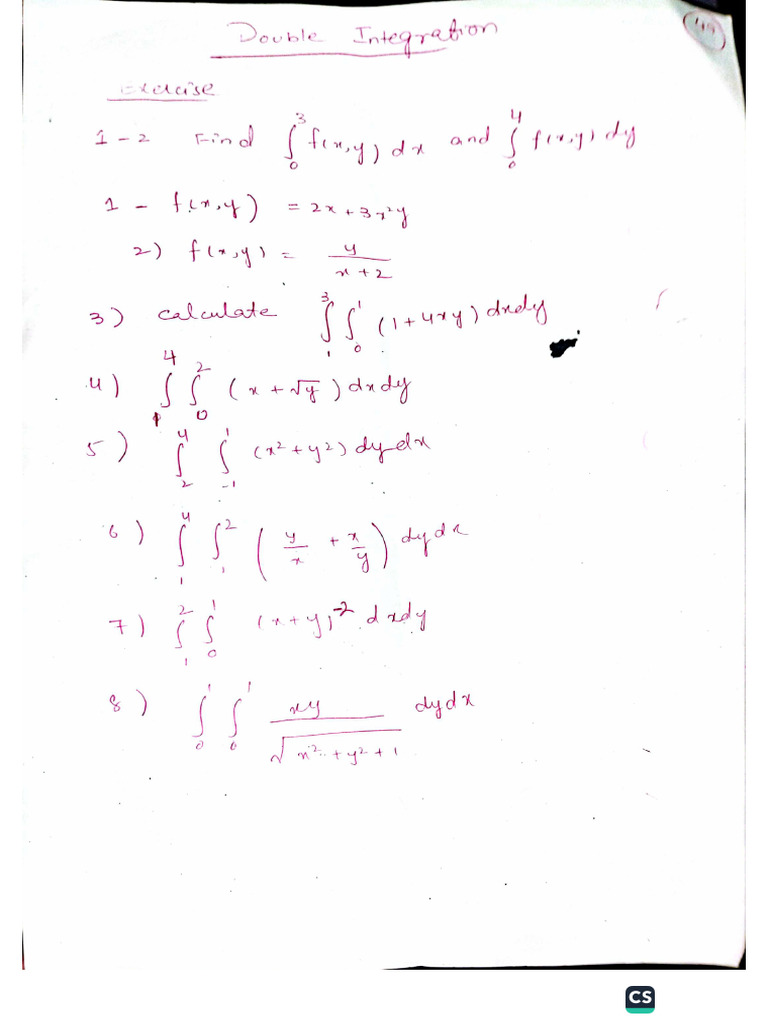 Double Integration
49
Exercise
1-2 Find ∫₀³ f(x,y) dx and ∫₀⁴ f(x,y) dy
1 - f(x,y) = 2x+3x²y
2) f(x,y) = y/(x+2)
3) Calculate ∫₁³ ∫₀¹ (1+4xy) dxdy
4) ∫₁⁴ ∫₀² (x+√y) dxdy
5) ∫₂⁴ ∫₋₁¹ (x²+y²) dydx
6) ∫₁⁴ ∫₁² (y/x + x/y) dydx
7) ∫₁² ∫₀¹ (x+y)⁻² dxdy
8) ∫₀¹ ∫₀¹ xy/√(x²+y²+1) dydx
CS